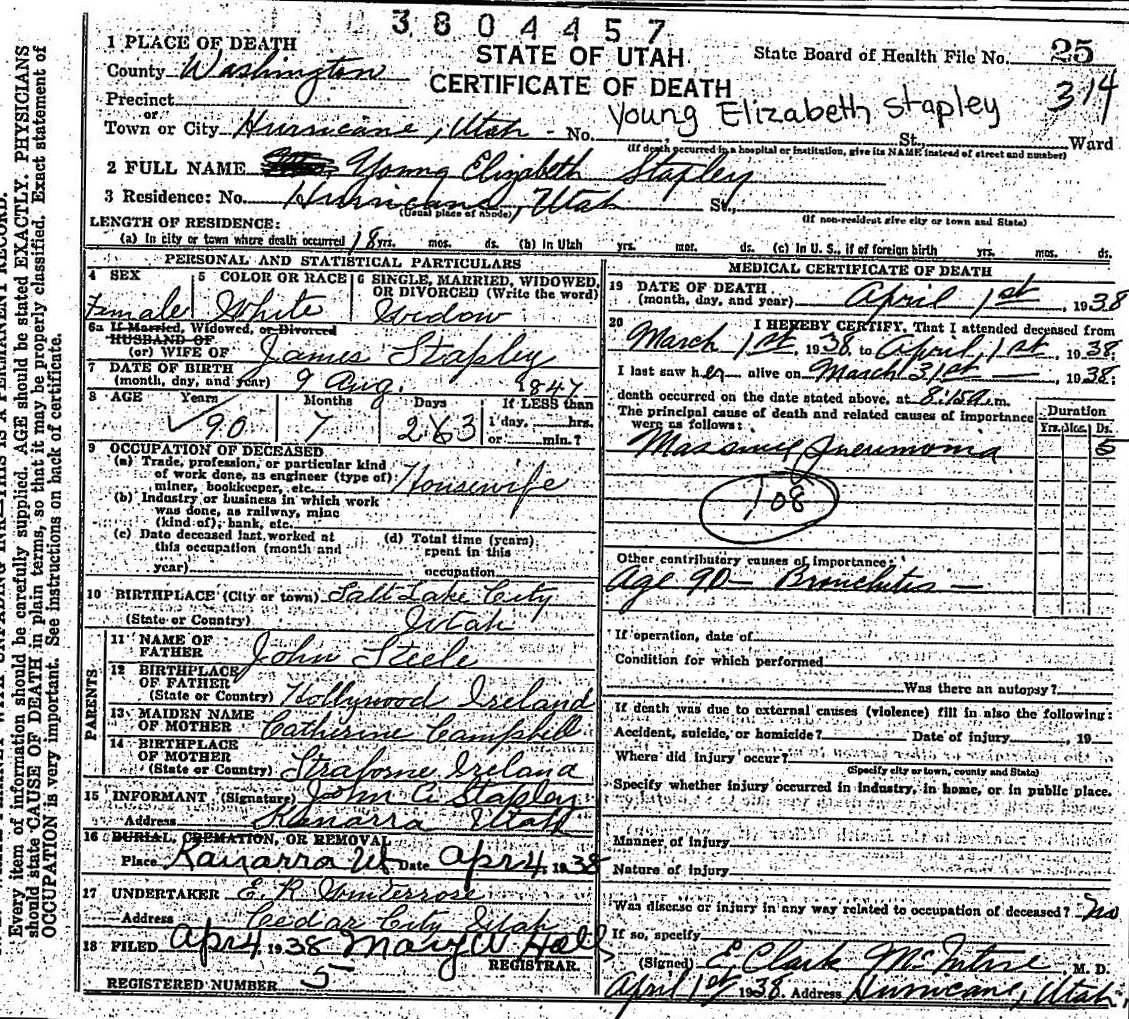 3804457
1 PLACE OF DEATH
STATE OF UTAH
State Board of Health File No. 25
County Washington
CERTIFICATE OF DEATH
314
Precinct
or
Young Elizabeth Stapley
Town or City Hurricane, Utah - No. St., Ward
(If death occurred in a hospital or institution, give its NAME instead of street and number)
2 FULL NAME Young Elizabeth Stapley
3 Residence: No. Hurricane, Utah St.,
(Usual place of abode)
(If non-resident give city or town and State)
LENGTH OF RESIDENCE:
(a) In city or town where death occurred 18 yrs. mos. ds. (b) In Utah yrs. mos. ds. (c) In U. S., if of foreign birth yrs. mos. ds.
PERSONAL AND STATISTICAL PARTICULARS
4 SEX
Female
5 COLOR OR RACE
White
6 SINGLE, MARRIED, WIDOWED,
OR DIVORCED (Write the word)
Widow
6a If Married, Widowed, or Divorced
HUSBAND OF
(or) WIFE OF James Stapley
7 DATE OF BIRTH
(month, day, and year) 9 Aug. 1847
8 AGE Years Months Days If LESS than
90 7 1 day, hrs.
or min.?
9 OCCUPATION OF DECEASED
(a) Trade, profession, or particular kind
of work done, as engineer (type of)
miner, bookkeeper, etc. Housewife
(b) Industry or business in which work
was done, as railway, mine
(kind of), bank, etc.
(c) Date deceased last worked at
this occupation (month and
year)
(d) Total time (years)
spent in this
occupation
10 BIRTHPLACE (City or town) Salt Lake City
(State or Country) Utah
PARENTS
11 NAME OF
FATHER John Steele
12 BIRTHPLACE
OF FATHER
(State or Country) Hollywood Ireland
13 MAIDEN NAME
OF MOTHER Catherine Campbell
14 BIRTHPLACE
OF MOTHER
(State or Country) Ireland
15 INFORMANT (Signature) John A Stapley
Address Kanarra Utah
16 BURIAL, CREMATION, OR REMOVAL
Place Kanarra Ut Date Apr 4, 1938
17 UNDERTAKER E. R.
Address Cedar City Utah
18 FILED Apr 4, 1938 Mary W Hall
REGISTRAR.
REGISTERED NUMBER 5
MEDICAL CERTIFICATE OF DEATH
19 DATE OF DEATH
(month, day, and year) April 1st, 1938
20 I HEREBY CERTIFY, That I attended deceased from
March 1st, 1938, to April, 1st, 1938:
I last saw her alive on March 31st, 1938:
death occurred on the date stated above, at 8:15 a.m.
The principal cause of death and related causes of importance
were as follows:
Duration
Yrs. Mos. Ds.
Massive Pneumonia 5
108
Other contributory causes of importance:
Age 90 - Bronchitis -
If operation, date of
Condition for which performed
Was there an autopsy?
If death was due to external causes (violence) fill in also the following:
Accident, suicide, or homicide? Date of injury , 19
Where did injury occur?
(Specify city or town, county and State)
Specify whether injury occurred in industry, in home, or in public place.
Manner of injury
Nature of injury
Was disease or injury in any way related to occupation of deceased? No
If so, specify
(Signed) E. Clark McIntire M. D.
April 1st, 1938. Address Hurricane, Utah.
Every item of information should be carefully supplied. AGE should be stated EXACTLY. PHYSICIANS
should state CAUSE OF DEATH in plain terms, so that it may be properly classified. Exact statement of
OCCUPATION is very important. See instructions on back of certificate.